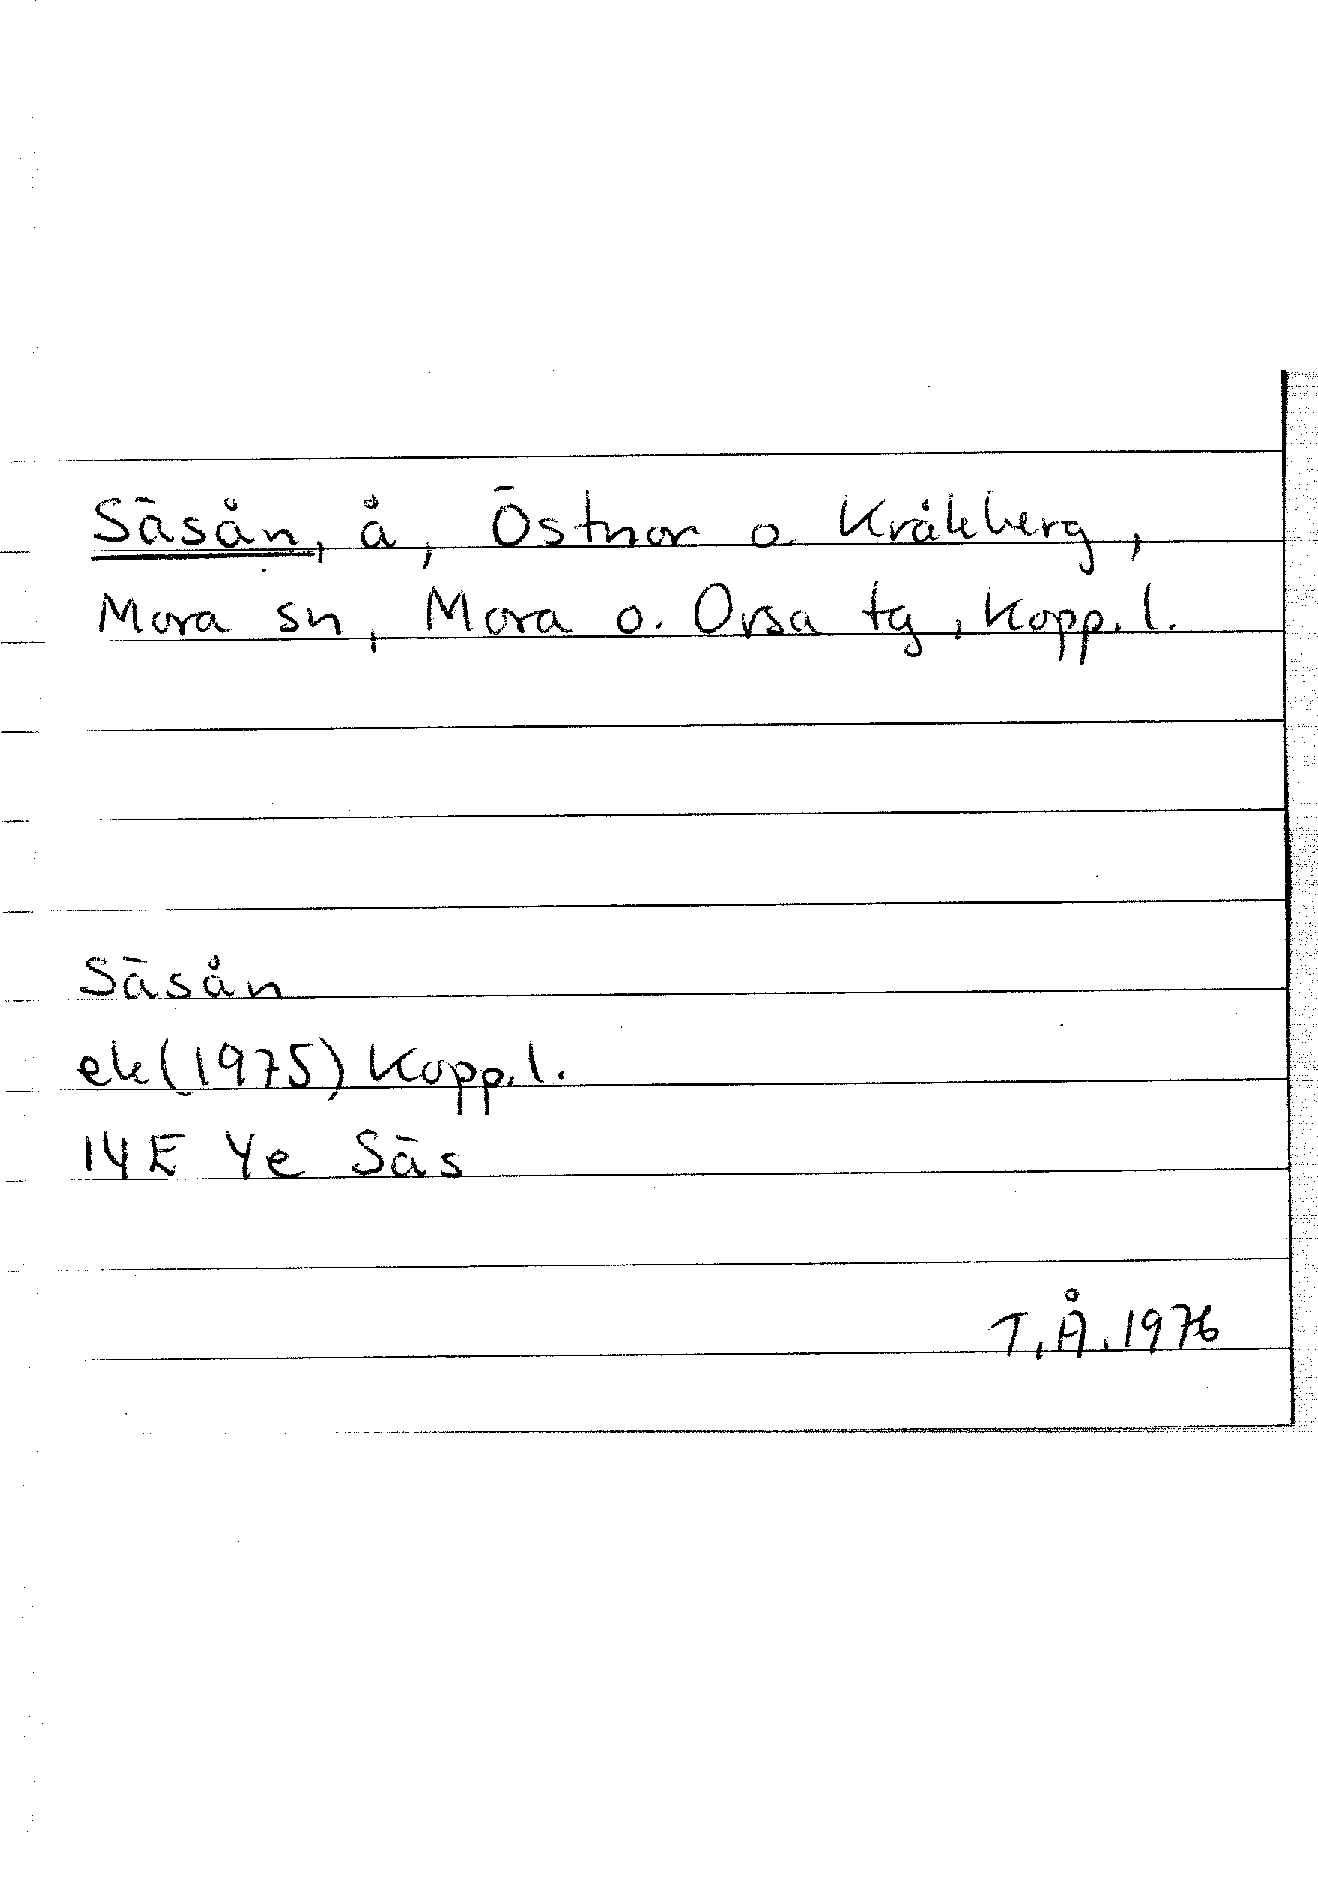 Säsån, å, Östnor o. Kråkberg,
Mora sn, Mora o. Orsa tg, Kopp. l.
Säsån
ek (1975) Kopp. l.
14E 4e Säs
T.Å. 1976